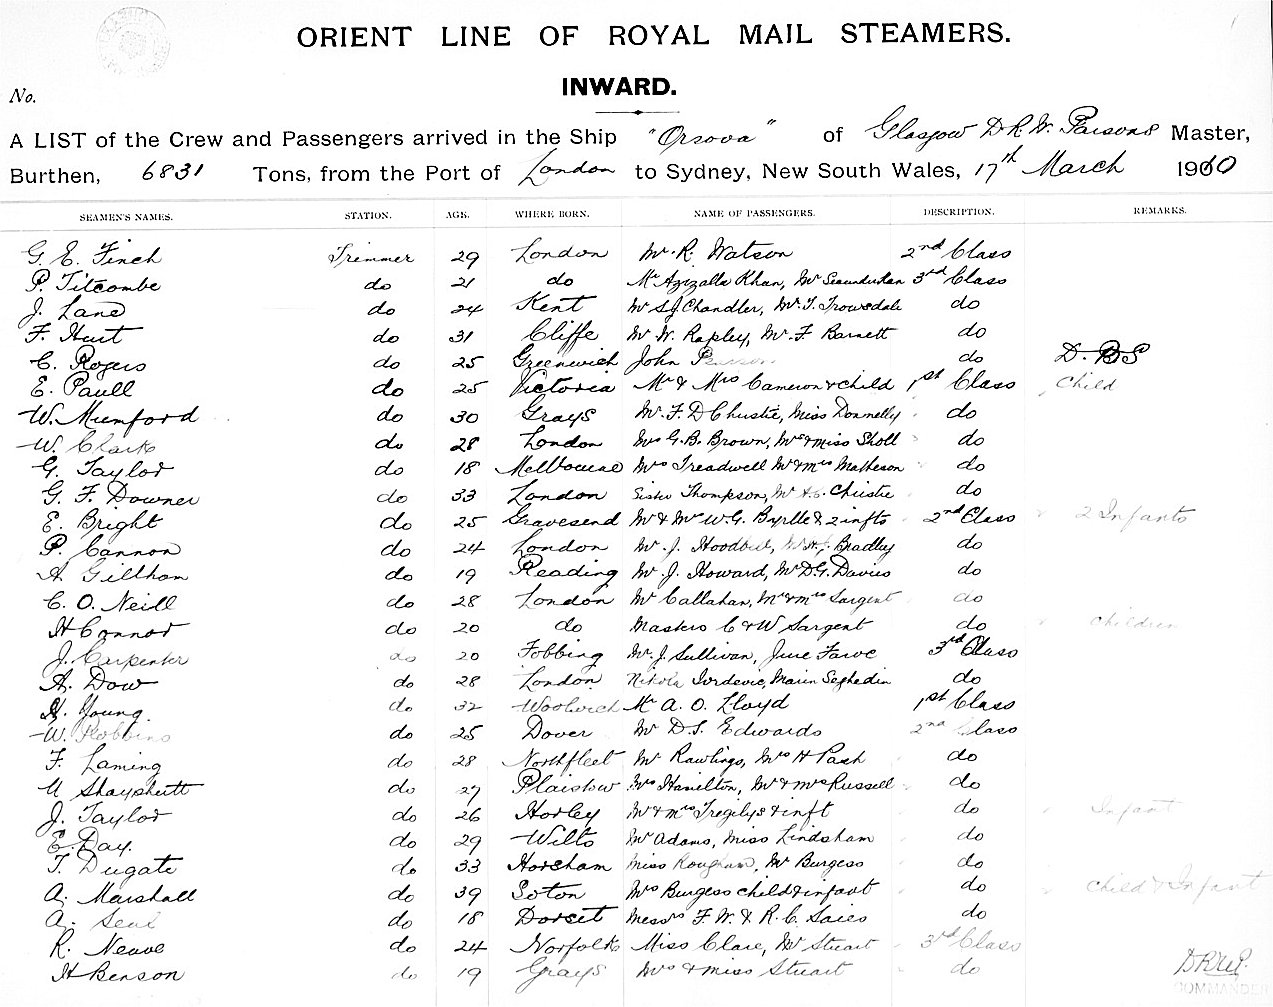 ORIENT LINE OF ROYAL MAIL STEAMERS.
INWARD.
No.
A LIST of the Crew and Passengers arrived in the Ship "Orsova" of Glasgow D R W. Parsons Master,
Burthen, 6831 Tons, from the Port of London to Sydney, New South Wales, 17th March 1910
SEAMEN'S NAMES. STATION. AGE. WHERE BORN. NAME OF PASSENGERS. DESCRIPTION. REMARKS.
G. E. Finch Trimmer 29 London Mr R. Watson 2nd Class
P. Titcombe do 21 do Mr Azizalla Khan, Mr 3rd Class
J. Lane do 24 Kent Mr S J Chandler, Mr T. Trowsdale do
F. Hurt do 31 Cliffe Mr W. Rapley, Mr F. Barnett do
C. Rogers do 25 Greenwich John do D. BS
E. Paull do 25 Victoria Mr & Mrs Cameron & child 1st Class Child
W. Mumford do 30 Grays Mr F. D Christie, Miss Donnelly do
W. Clark do 28 London Mrs G. B. Brown, Mrs & Miss Sholl do
G. Taylor do 18 Melbourne Mrs Treadwell Mr & Mrs Matheson do
G. F. Downer do 33 London Sister Thompson, Mr Christie do
E. Bright do 25 Gravesend Mr & Mrs W. G. & 2 infts 2nd Class 2 Infants
P. Cannon do 24 London Mr J. Bradley do
A Gillham do 19 Reading Mr J. Howard, Mr D. G. Davies do
C. O. Neill do 28 London Mr Callahan, Mr & Mrs Sargent do
H Connor do 20 do Masters C & W Sargent do Children
J. Carpenter do 20 Fobbing Mr J. Sullivan, 3rd Class
A. Dow do 28 London Nikola do
H. Young. do 32 Woolwich Mr A. O. Lloyd 1st Class
W. Robbins do 25 Dover Mr D. S. Edwards 2nd Class
F. Laming do 28 Northfleet Mr Rawlings, Mrs H Pash do
do 27 Plaistow Mrs Hamilton, Mr & Mrs Russell do
J. Taylor do 26 Horley Mr & Mrs & inft do Infant
E. Day. do 29 Wilts Mr Adams, Miss Lindsham do
T. Dugate do 33 Horsham Miss Mr Burgess do
A. Marshall do 39 Soton Mrs Burgess child & infant do Child & Infant
A. do 18 Dorset Messrs F. W. & R. C. do
R. Neave do 24 Norfolk Miss Clare, Mr Stuart 3rd Class
H Benson do 19 Grays Mrs & Miss Stuart do
D R W P.
COMMANDER